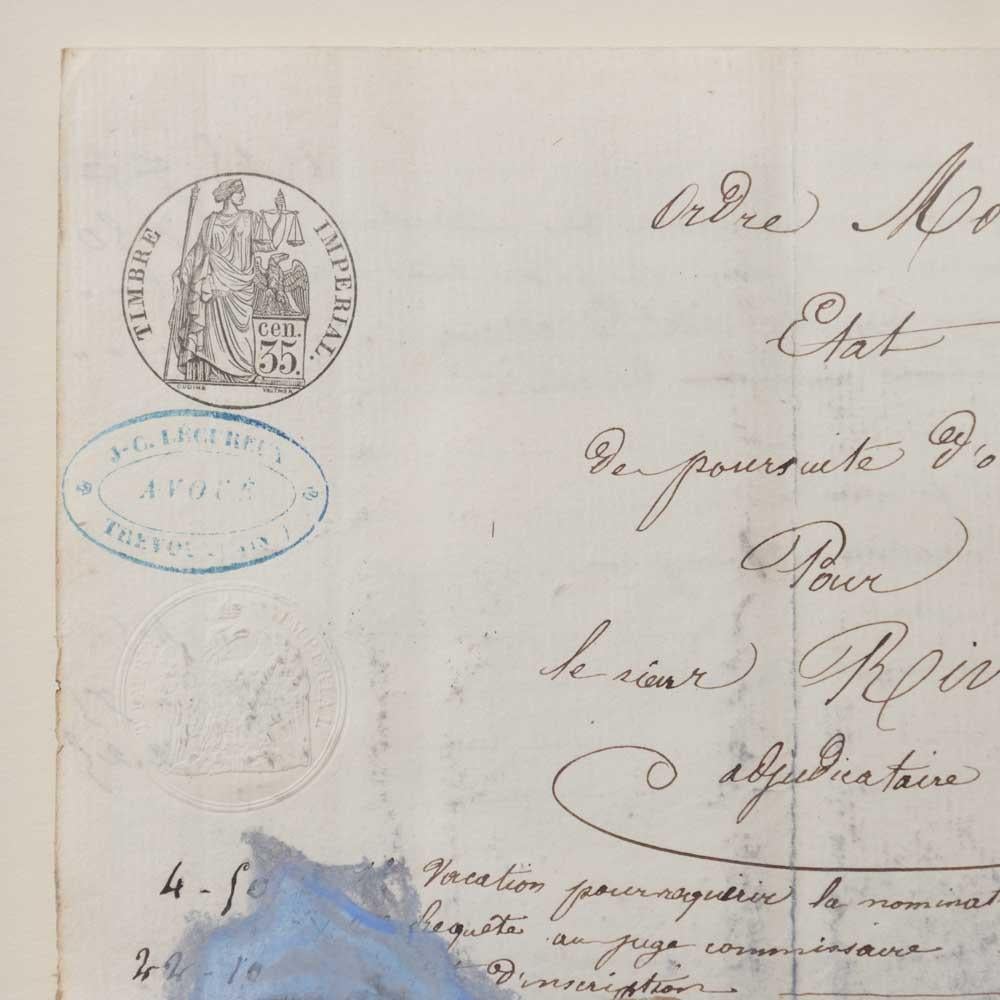 TIMBRE IMPERIAL.
cen.
35.
J-C. LÉCUREUX
AVOUÉ
TRÉVOUX (AIN)
IMPERIAL
Ordre Mo
Etat
de poursuite d'o
Pour
le sieur Riv
adjudicataire
4 - 50 Vacation pour requérir la nominat
Requête au juge commissaire
22 - 10 d'inscription